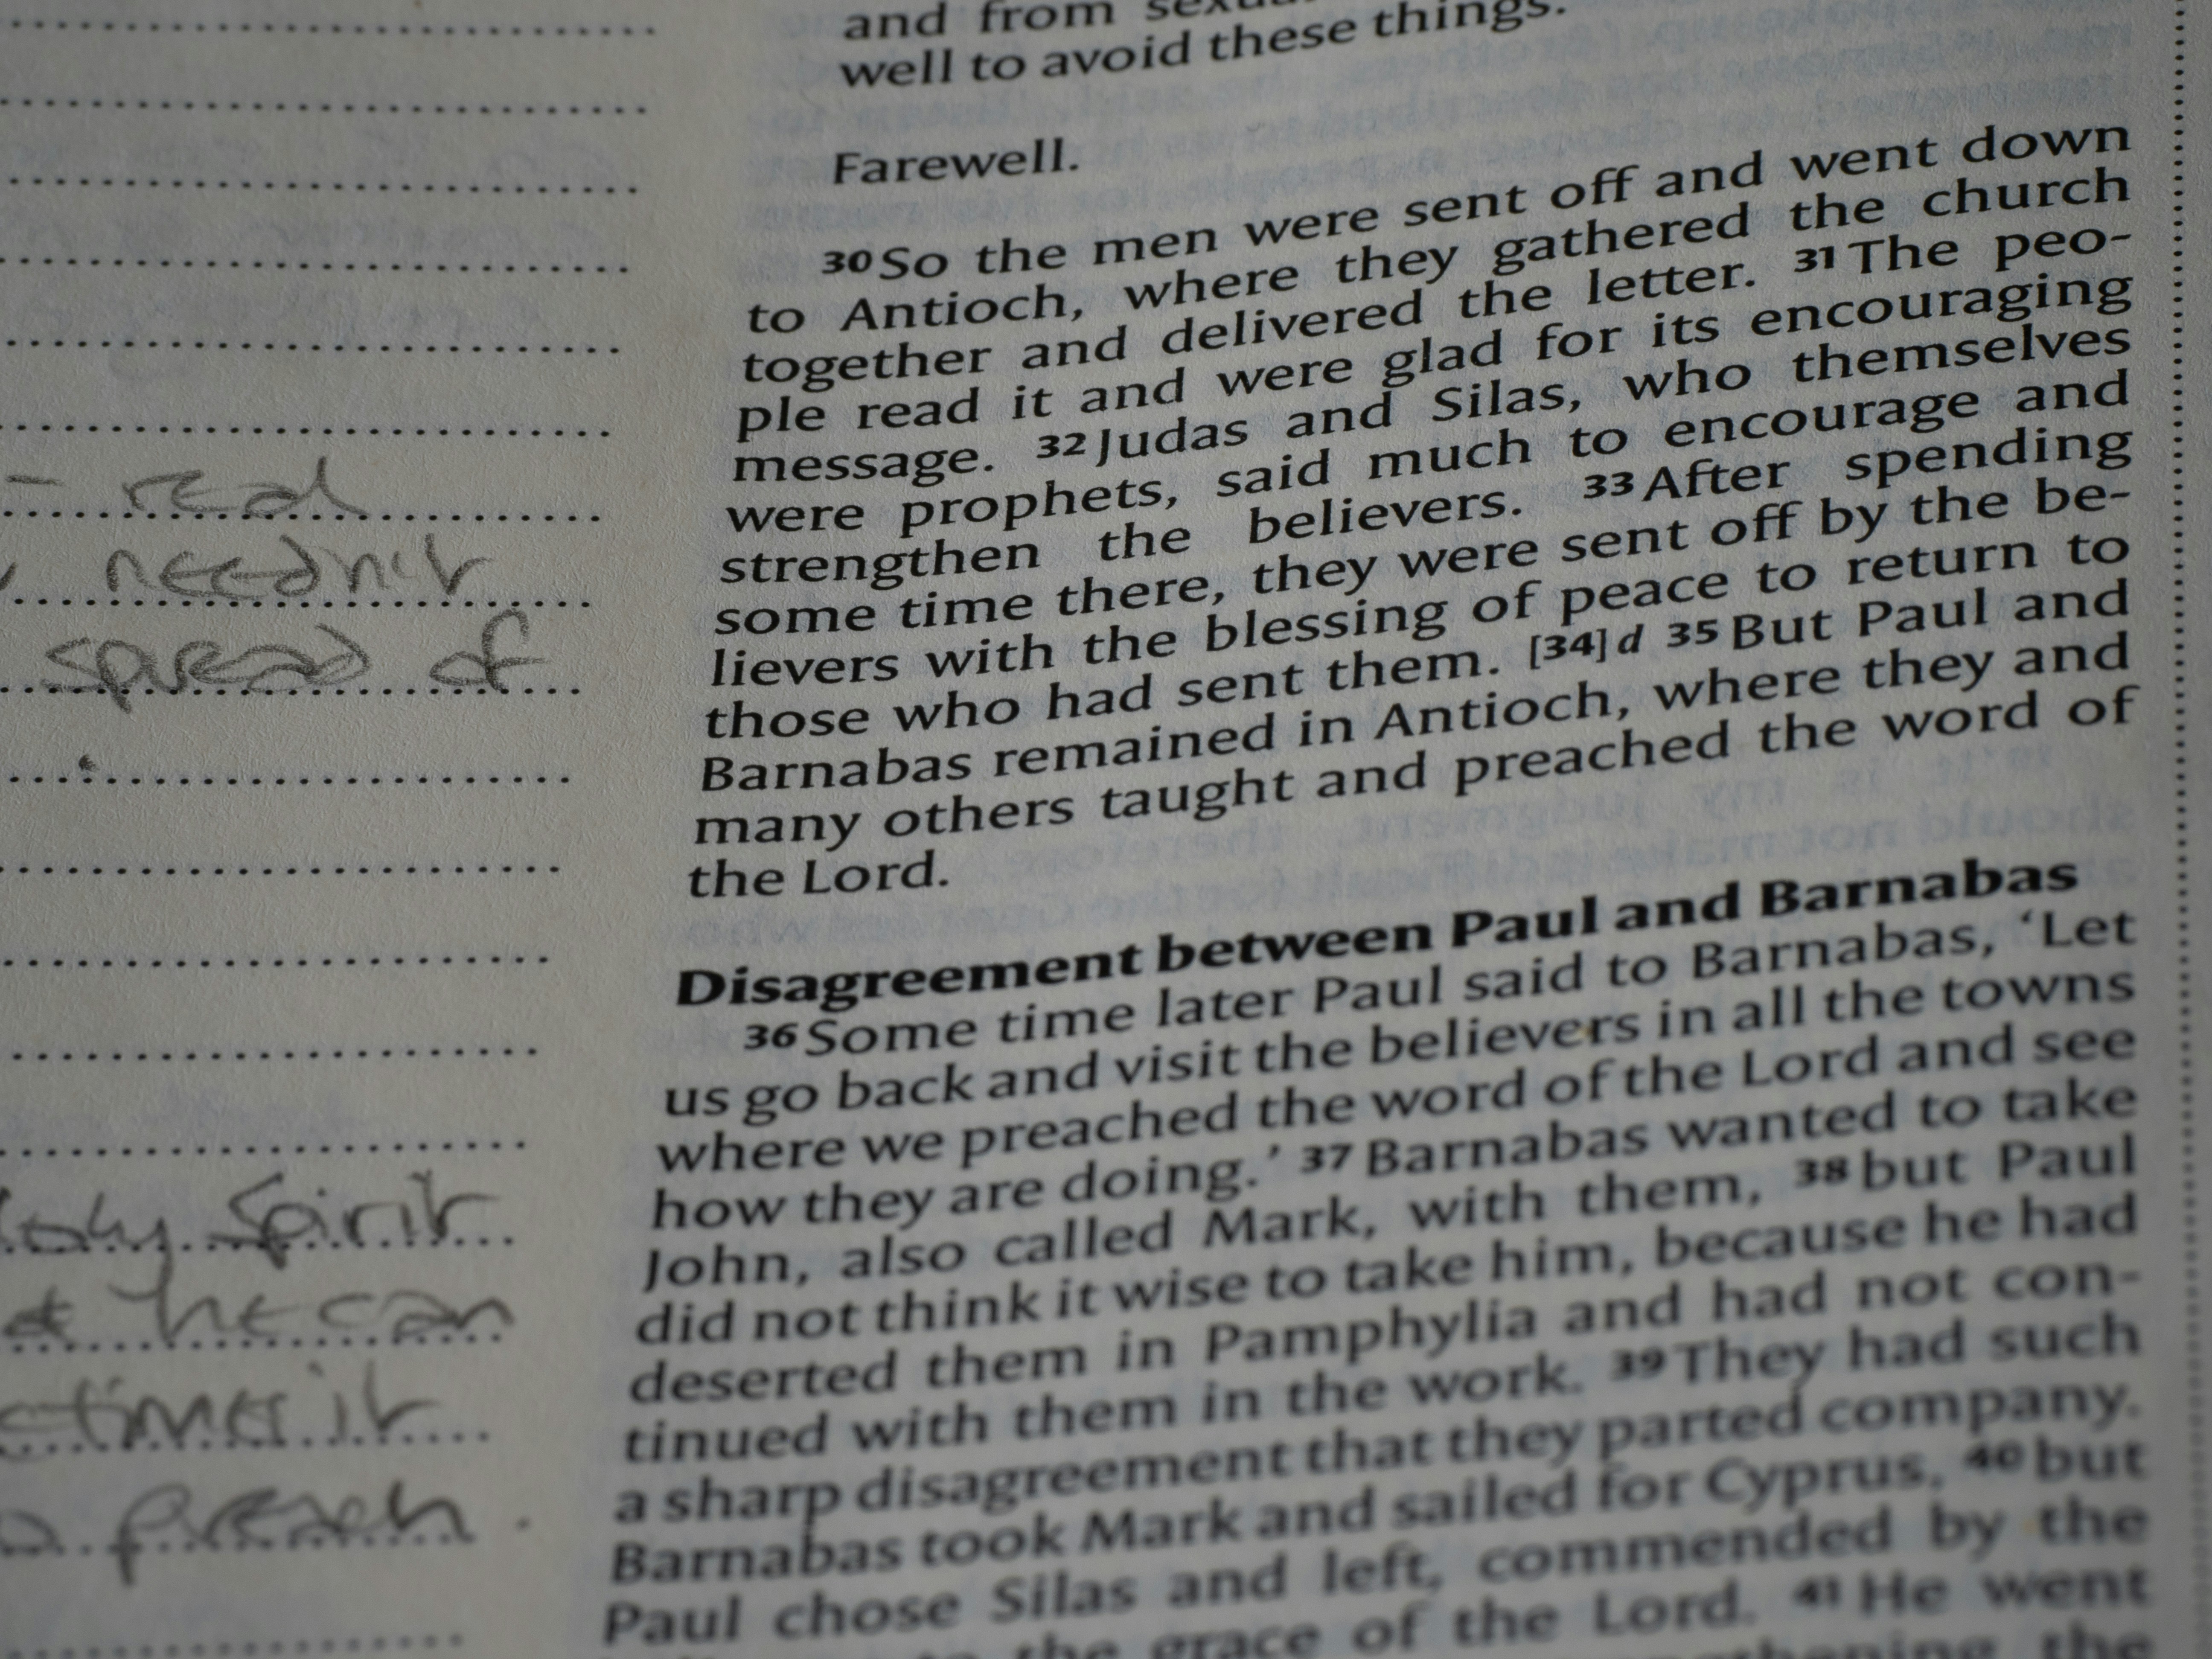 and from
well to avoid these things.
Farewell.
30 So the men were sent off and went down
to Antioch, where they gathered the church
together and delivered the letter. 31 The peo-
ple read it and were glad for its encouraging
message. 32 Judas and Silas, who themselves
were prophets, said much to encourage and
strengthen the believers. 33 After spending
some time there, they were sent off by the be-
lievers with the blessing of peace to return to
those who had sent them. [34] d 35 But Paul and
Barnabas remained in Antioch, where they and
many others taught and preached the word of
the Lord.
Disagreement between Paul and Barnabas
36 Some time later Paul said to Barnabas, ‘Let
us go back and visit the believers in all the towns
where we preached the word of the Lord and see
how they are doing.’ 37 Barnabas wanted to take
John, also called Mark, with them, 38 but Paul
did not think it wise to take him, because he had
deserted them in Pamphylia and had not con-
tinued with them in the work. 39 They had such
a sharp disagreement that they parted company.
Barnabas took Mark and sailed for Cyprus, 40 but
Paul chose Silas and left, commended by the
the grace of the Lord. 41 He went
the
- read
spread of
Spirit
he can
preach.